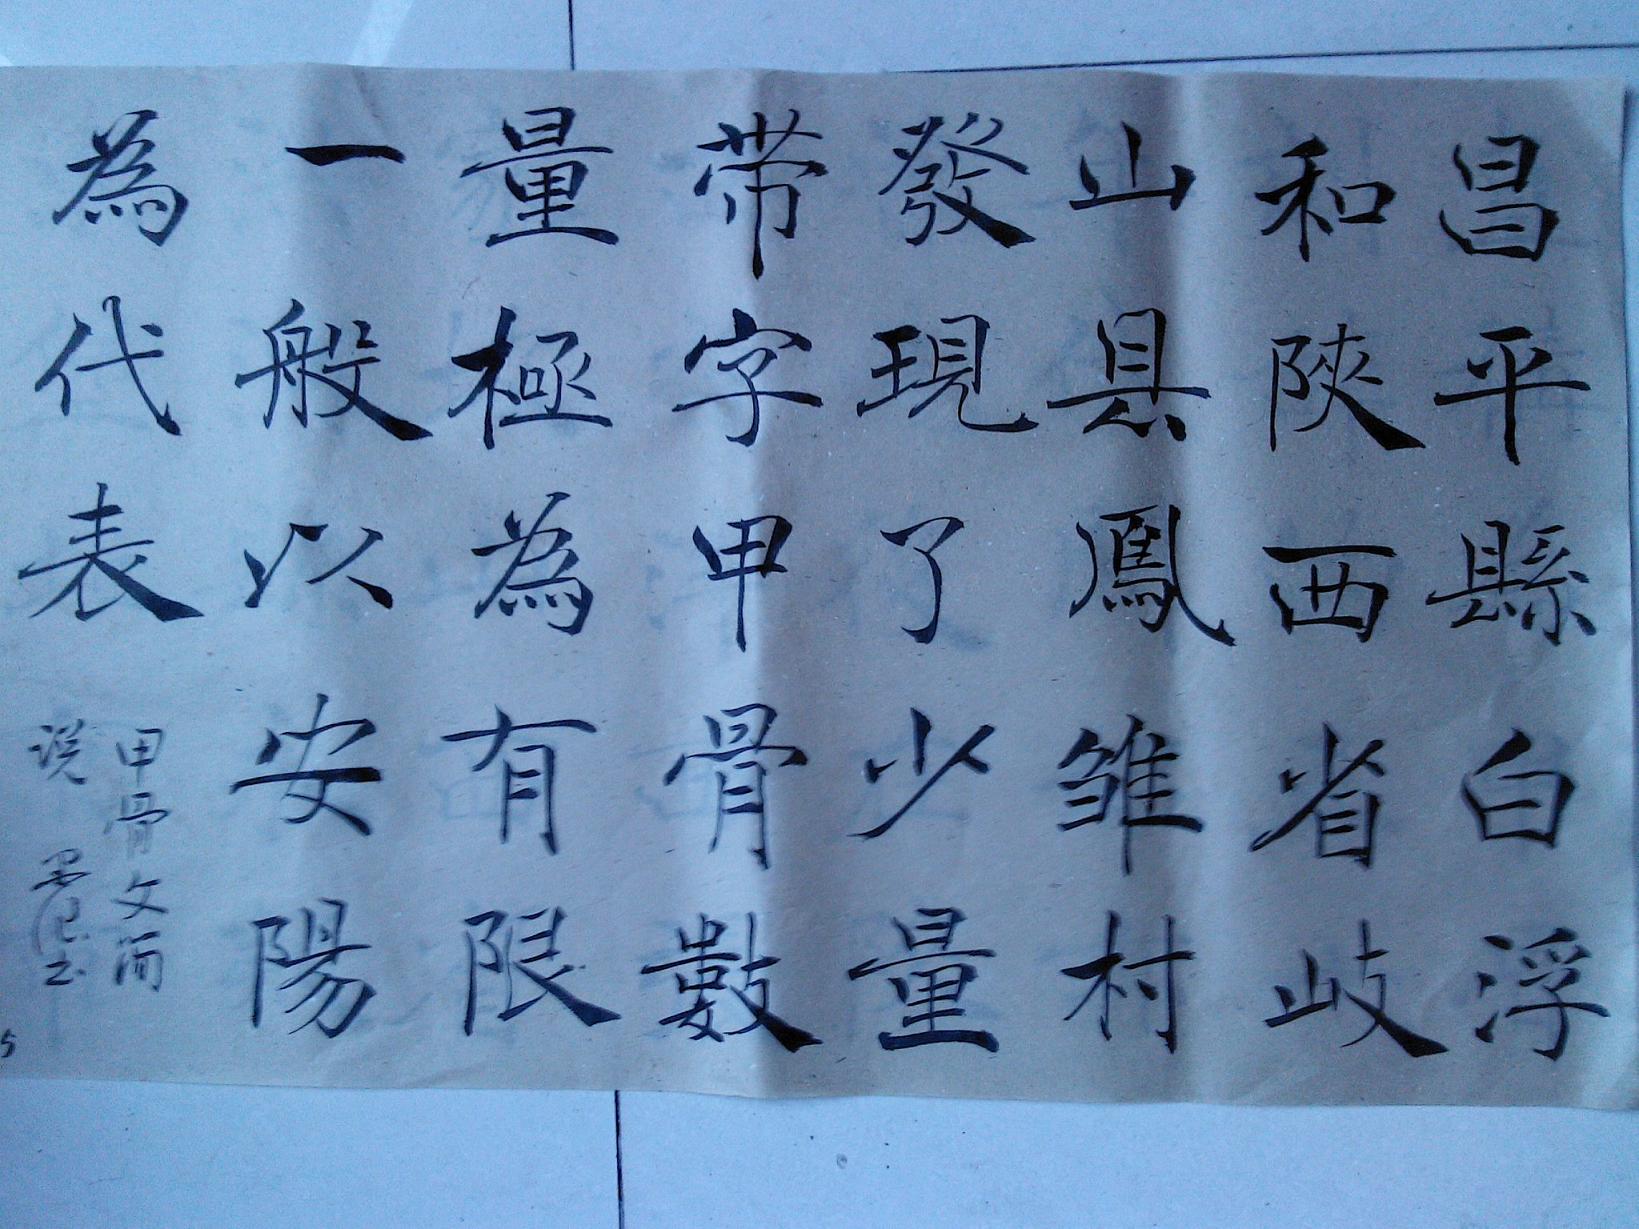 昌平縣白浮
和陝西省岐
山县鳳雏村
發現了少量
带字甲骨數
量極為有限
一般以安陽
為代表
甲骨文簡
说